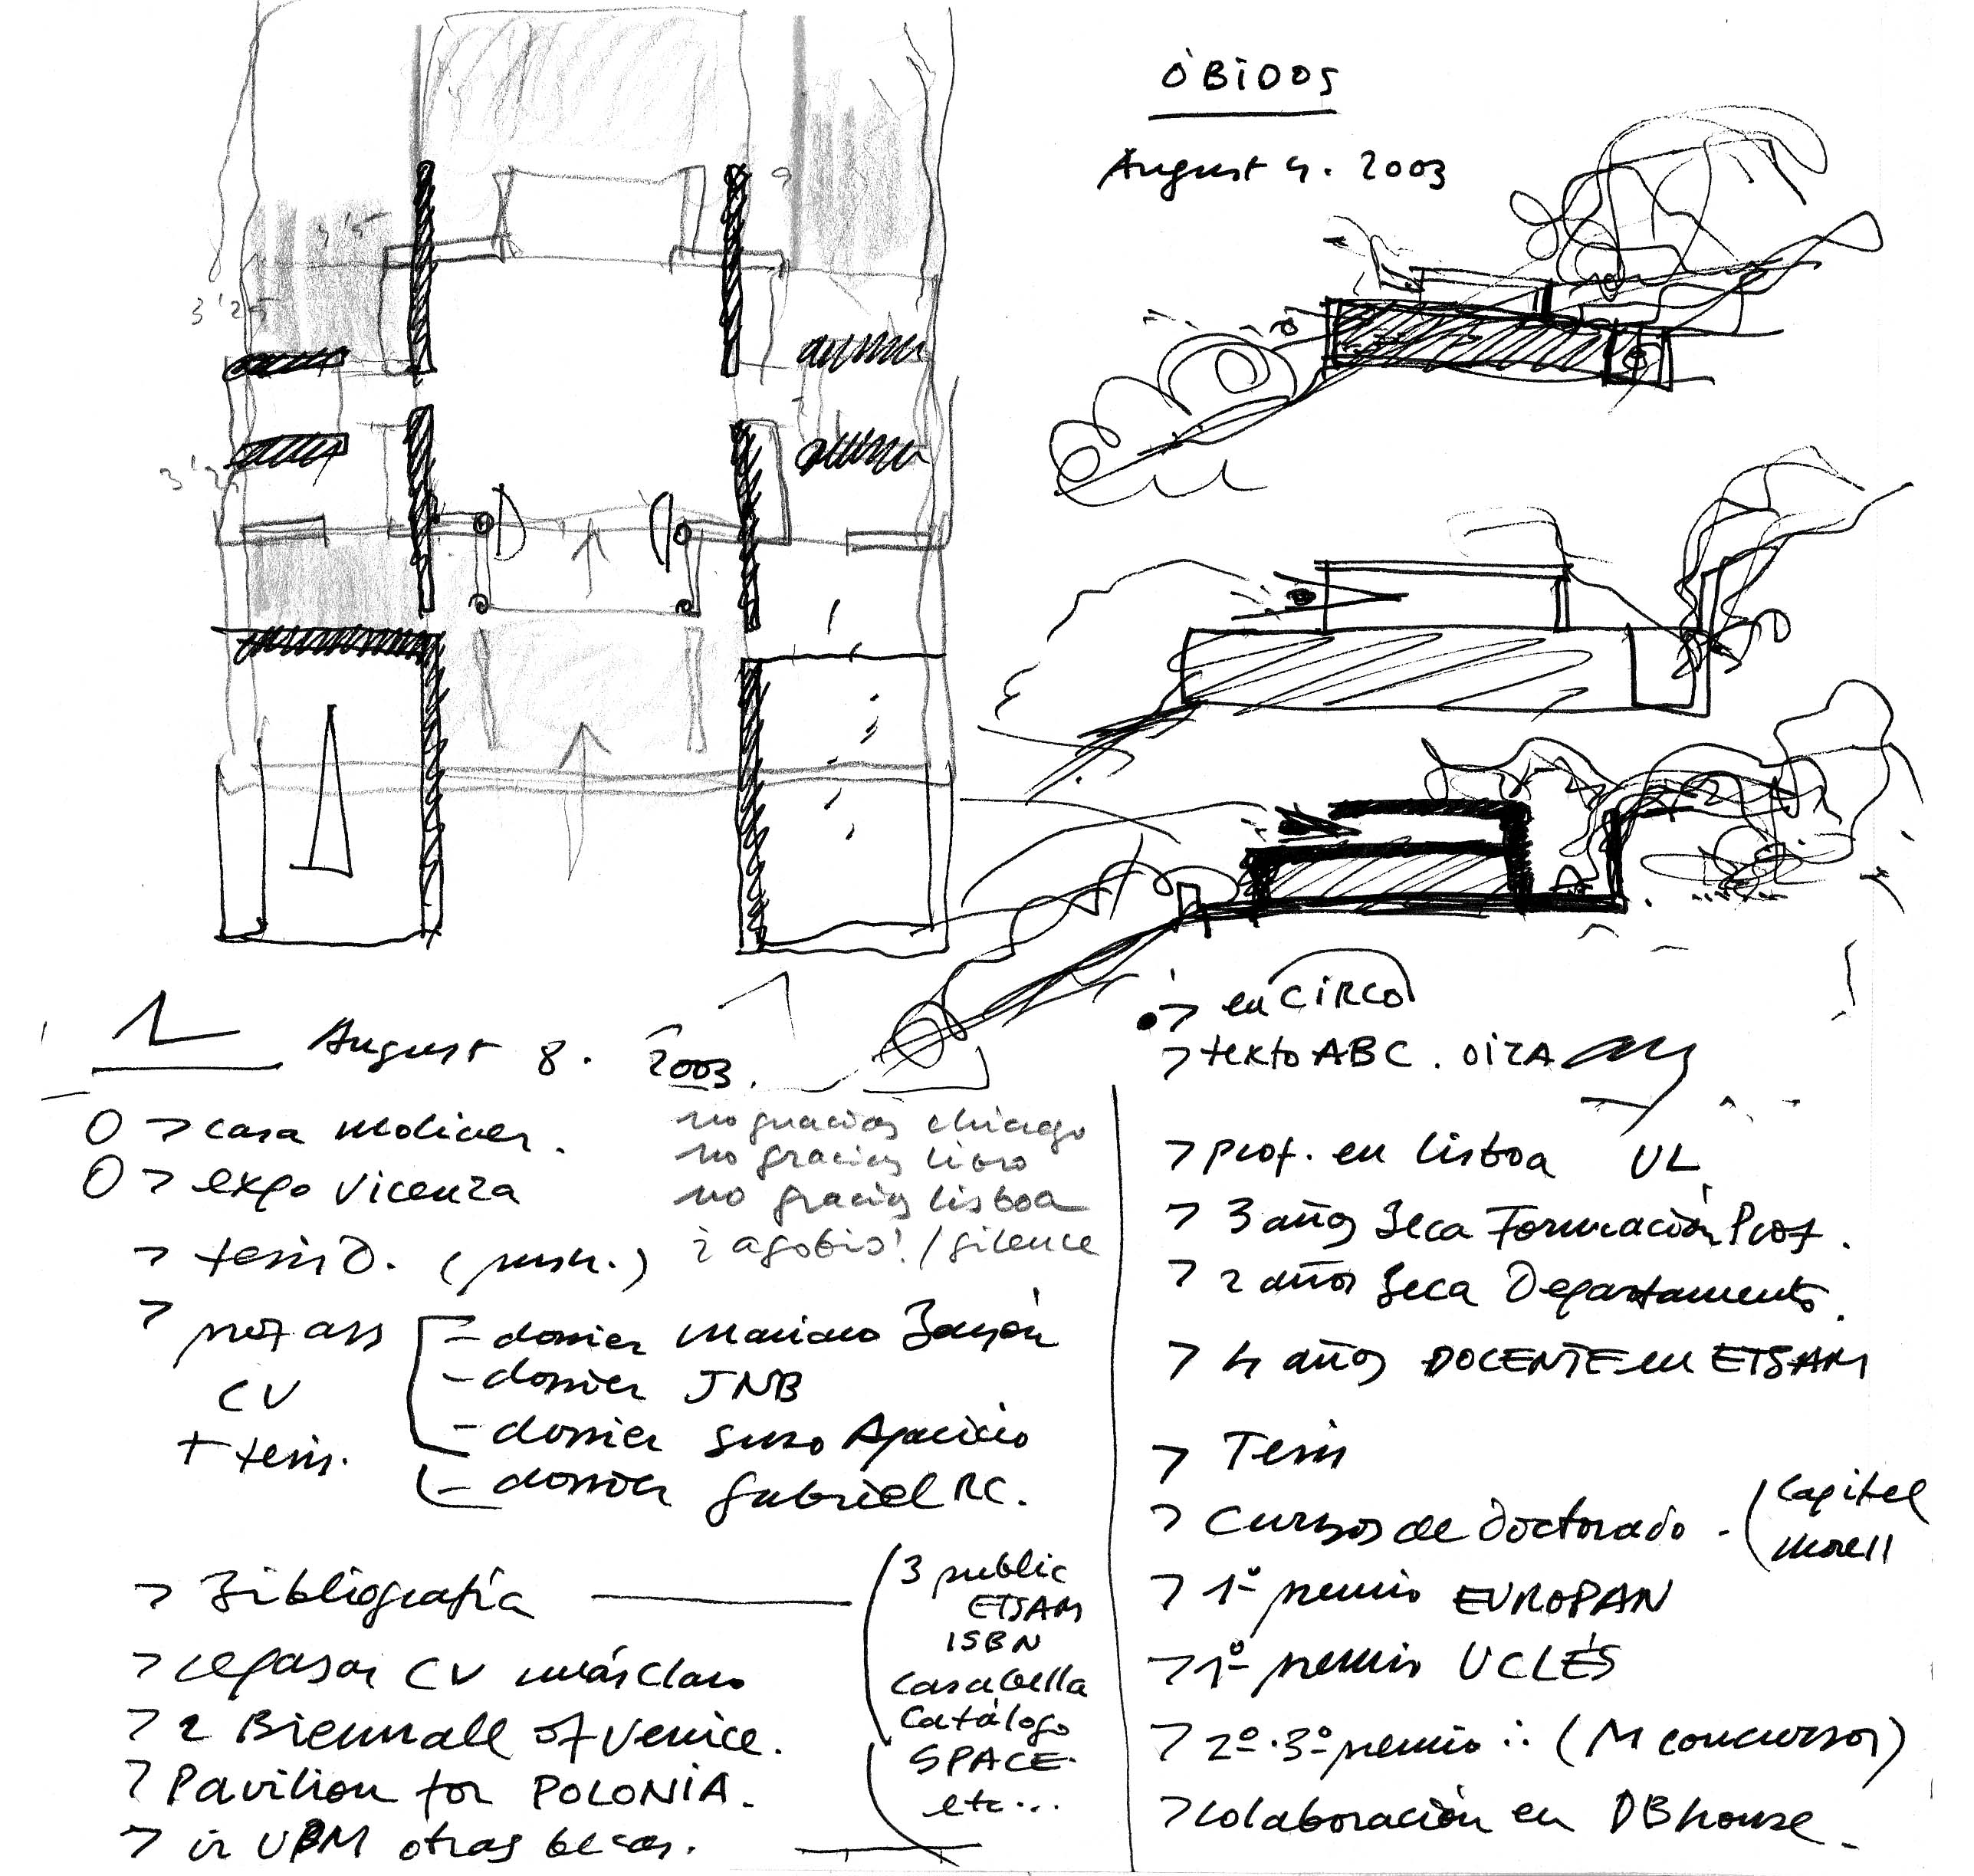 ÓBiDOS
August 4. 2003
3'5
3'25
3'25
en CiRCO
> texto ABC. OiZA
August 8. 2003.
O > casa moliner.
O > expo Vicenza
no gracias chicago
no gracias libro
no gracias lisboa
¡agobio! / silence
> tesis D.
> prof ass
CV
+ tesis.
- dossier Mariano Bayón
- dossier JNB
- dossier Suso Aparicio
- dossier Gabriel RC.
> Bibliografía
3 public
ETSAM
ISBN
Casabella
Catálogo
SPACE
etc...
> repasar CV más claro
> 2 Biennall of Venice.
> Pavilion for POLONiA.
> ir UPM otras becas.
> prof. en lisboa UL
> 3 años Beca Formación Prof.
> 2 años Beca Departamento.
> 4 años DOCENTE en ETSAM
> Tesis
> Cursos de Doctorado - (Capitel
Morell
> 1º premio EUROPAN
> 1º premio UCLÉS
> 2º.3º premio :. (M concursos)
> colaboración en DBhouse.